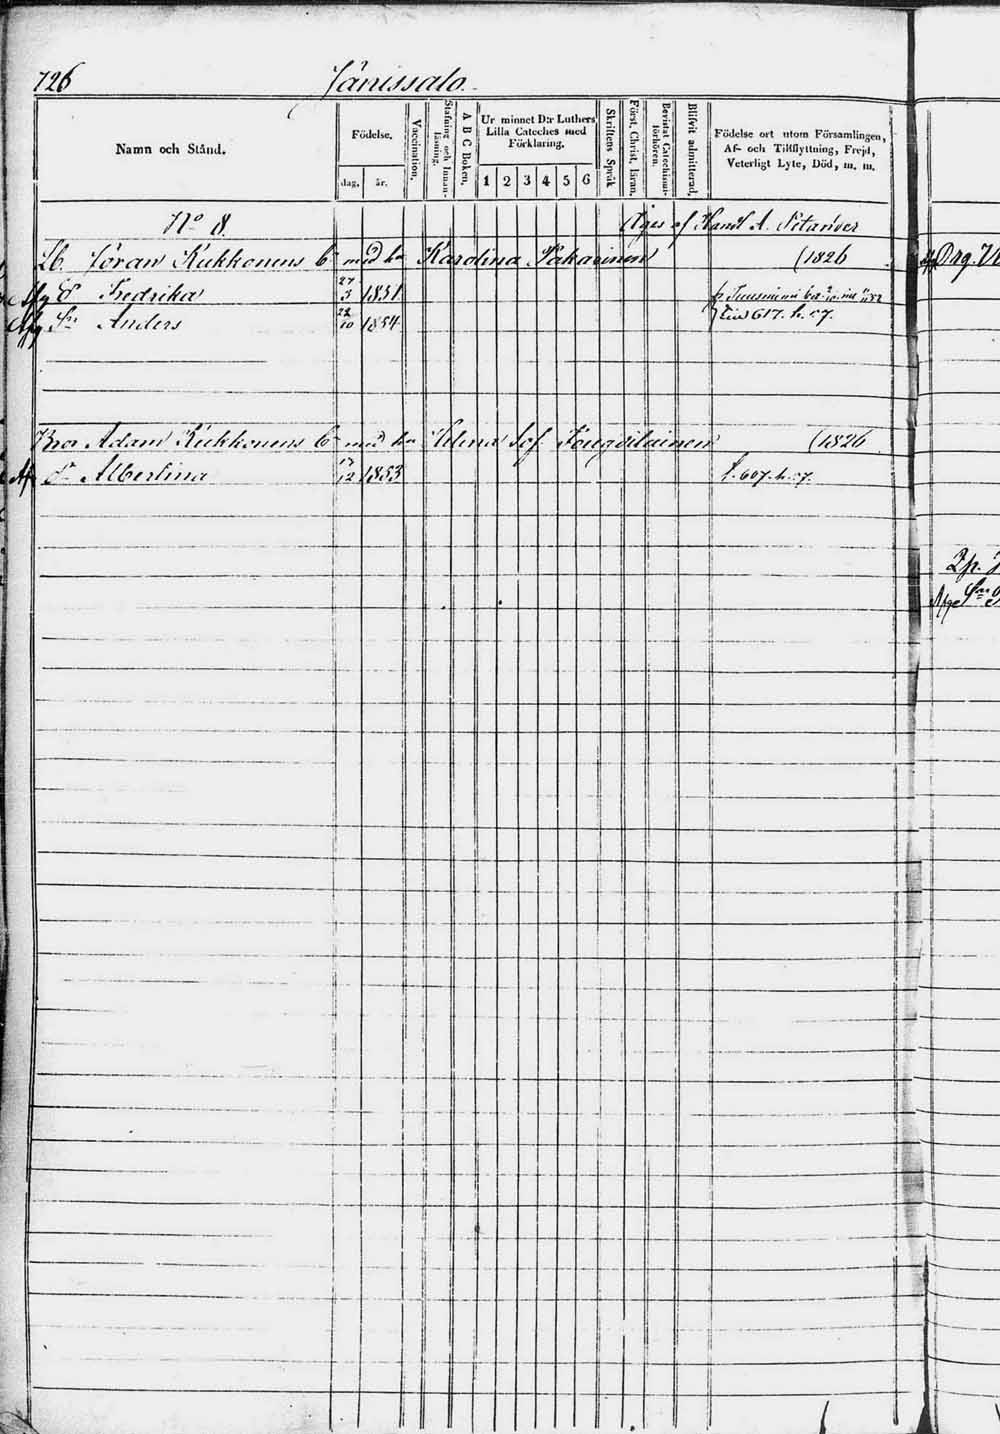 726 Jänissalo
Namn och Stånd.
Födelse.
dag. år.
Vaccination.
Stafning och Innan-läsning.
A B C Boken.
Ur minnet D:r Luthers
Lilla Cateches med
Förklaring.
1 2 3 4 5 6
Skriftens Språk
Först. Christ. läran.
Bevistat Catechismi-förhören.
Blifvit admitterad.
Födelse ort utom Församlingen,
Af- och Tillflyttning, Frejd,
Veterligt Lyte, Död, m. m.
No 8. Äges af Handl A.
Lb. Jöran Kukkonens med hu Karolina Pakarinen (1826
Fredrika 27/3 1851
Sn Anders 22/10 1854 617. h. 57.
Bror Adam Kukkonens med hu Helena Sof. (1826
dr Albertina 12 1853 f. 607. h. 57.
Drg.